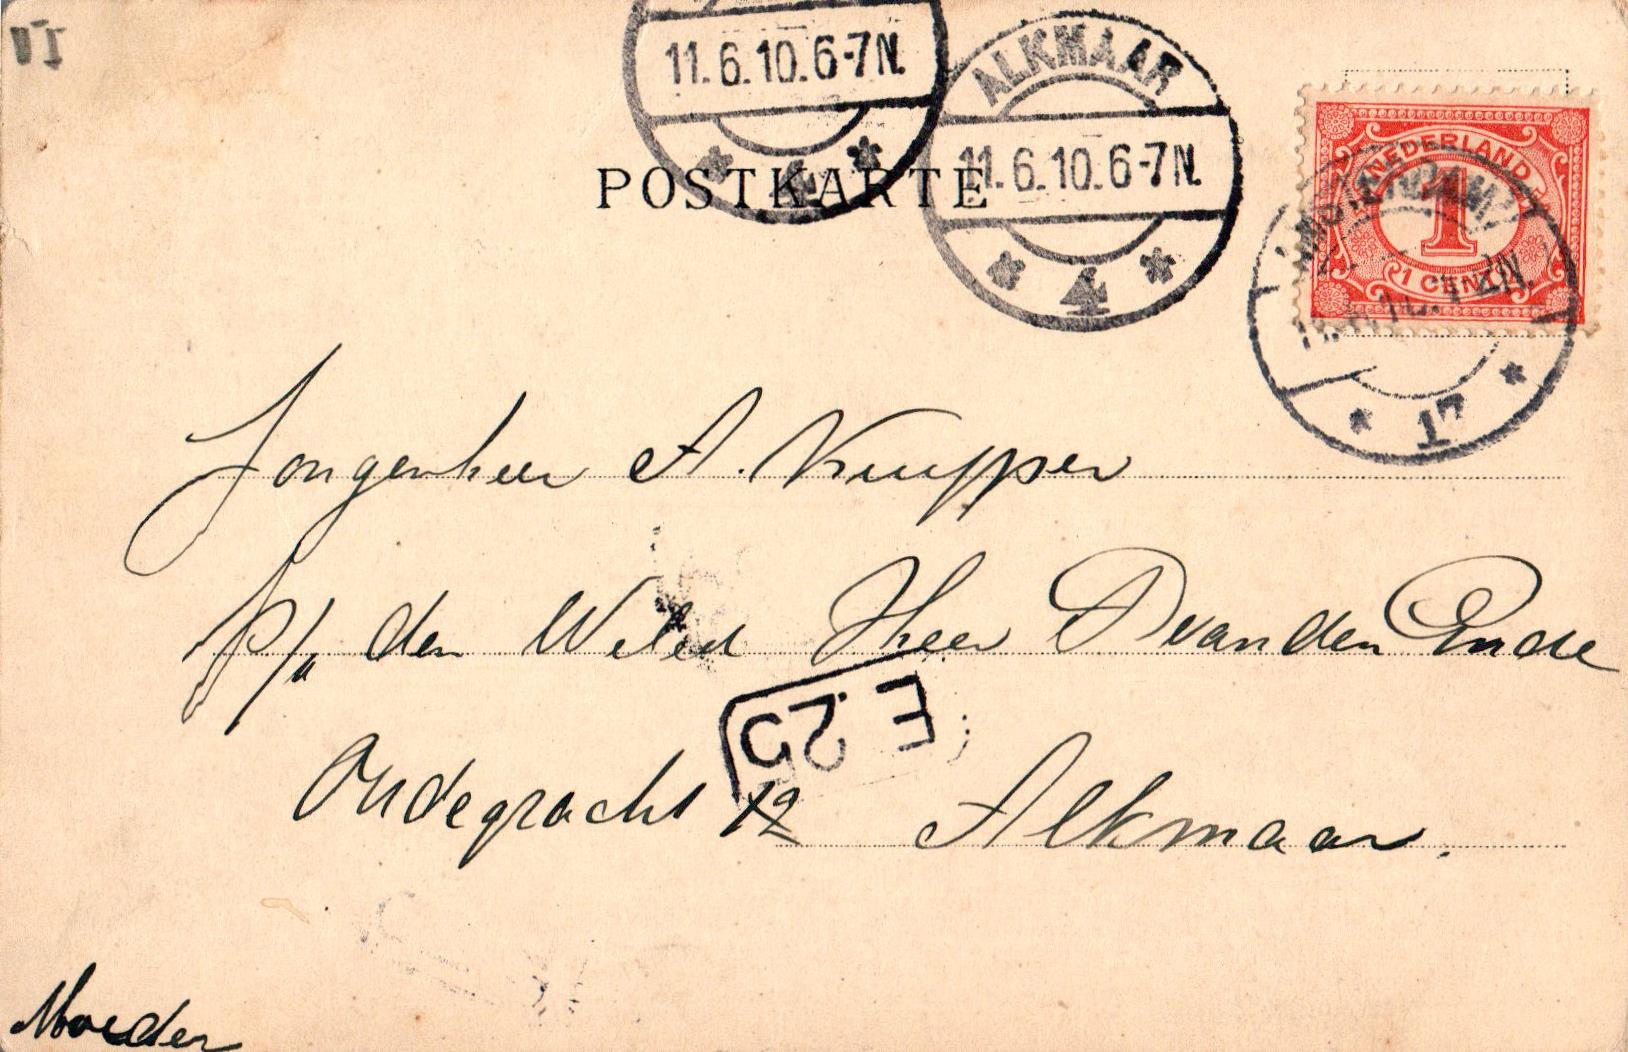 11.6.10.6-7N.
ALKMAAR
11.6.10.6-7N.
4
POSTKARTE
NEDERLAND
1
1 CENT
AMSTERDAM
17
Jongenheer A. Kuypper
p/a den WelEd Heer D van den Ende
E.25
Oudegracht 12 Alkmaar.
Moeder